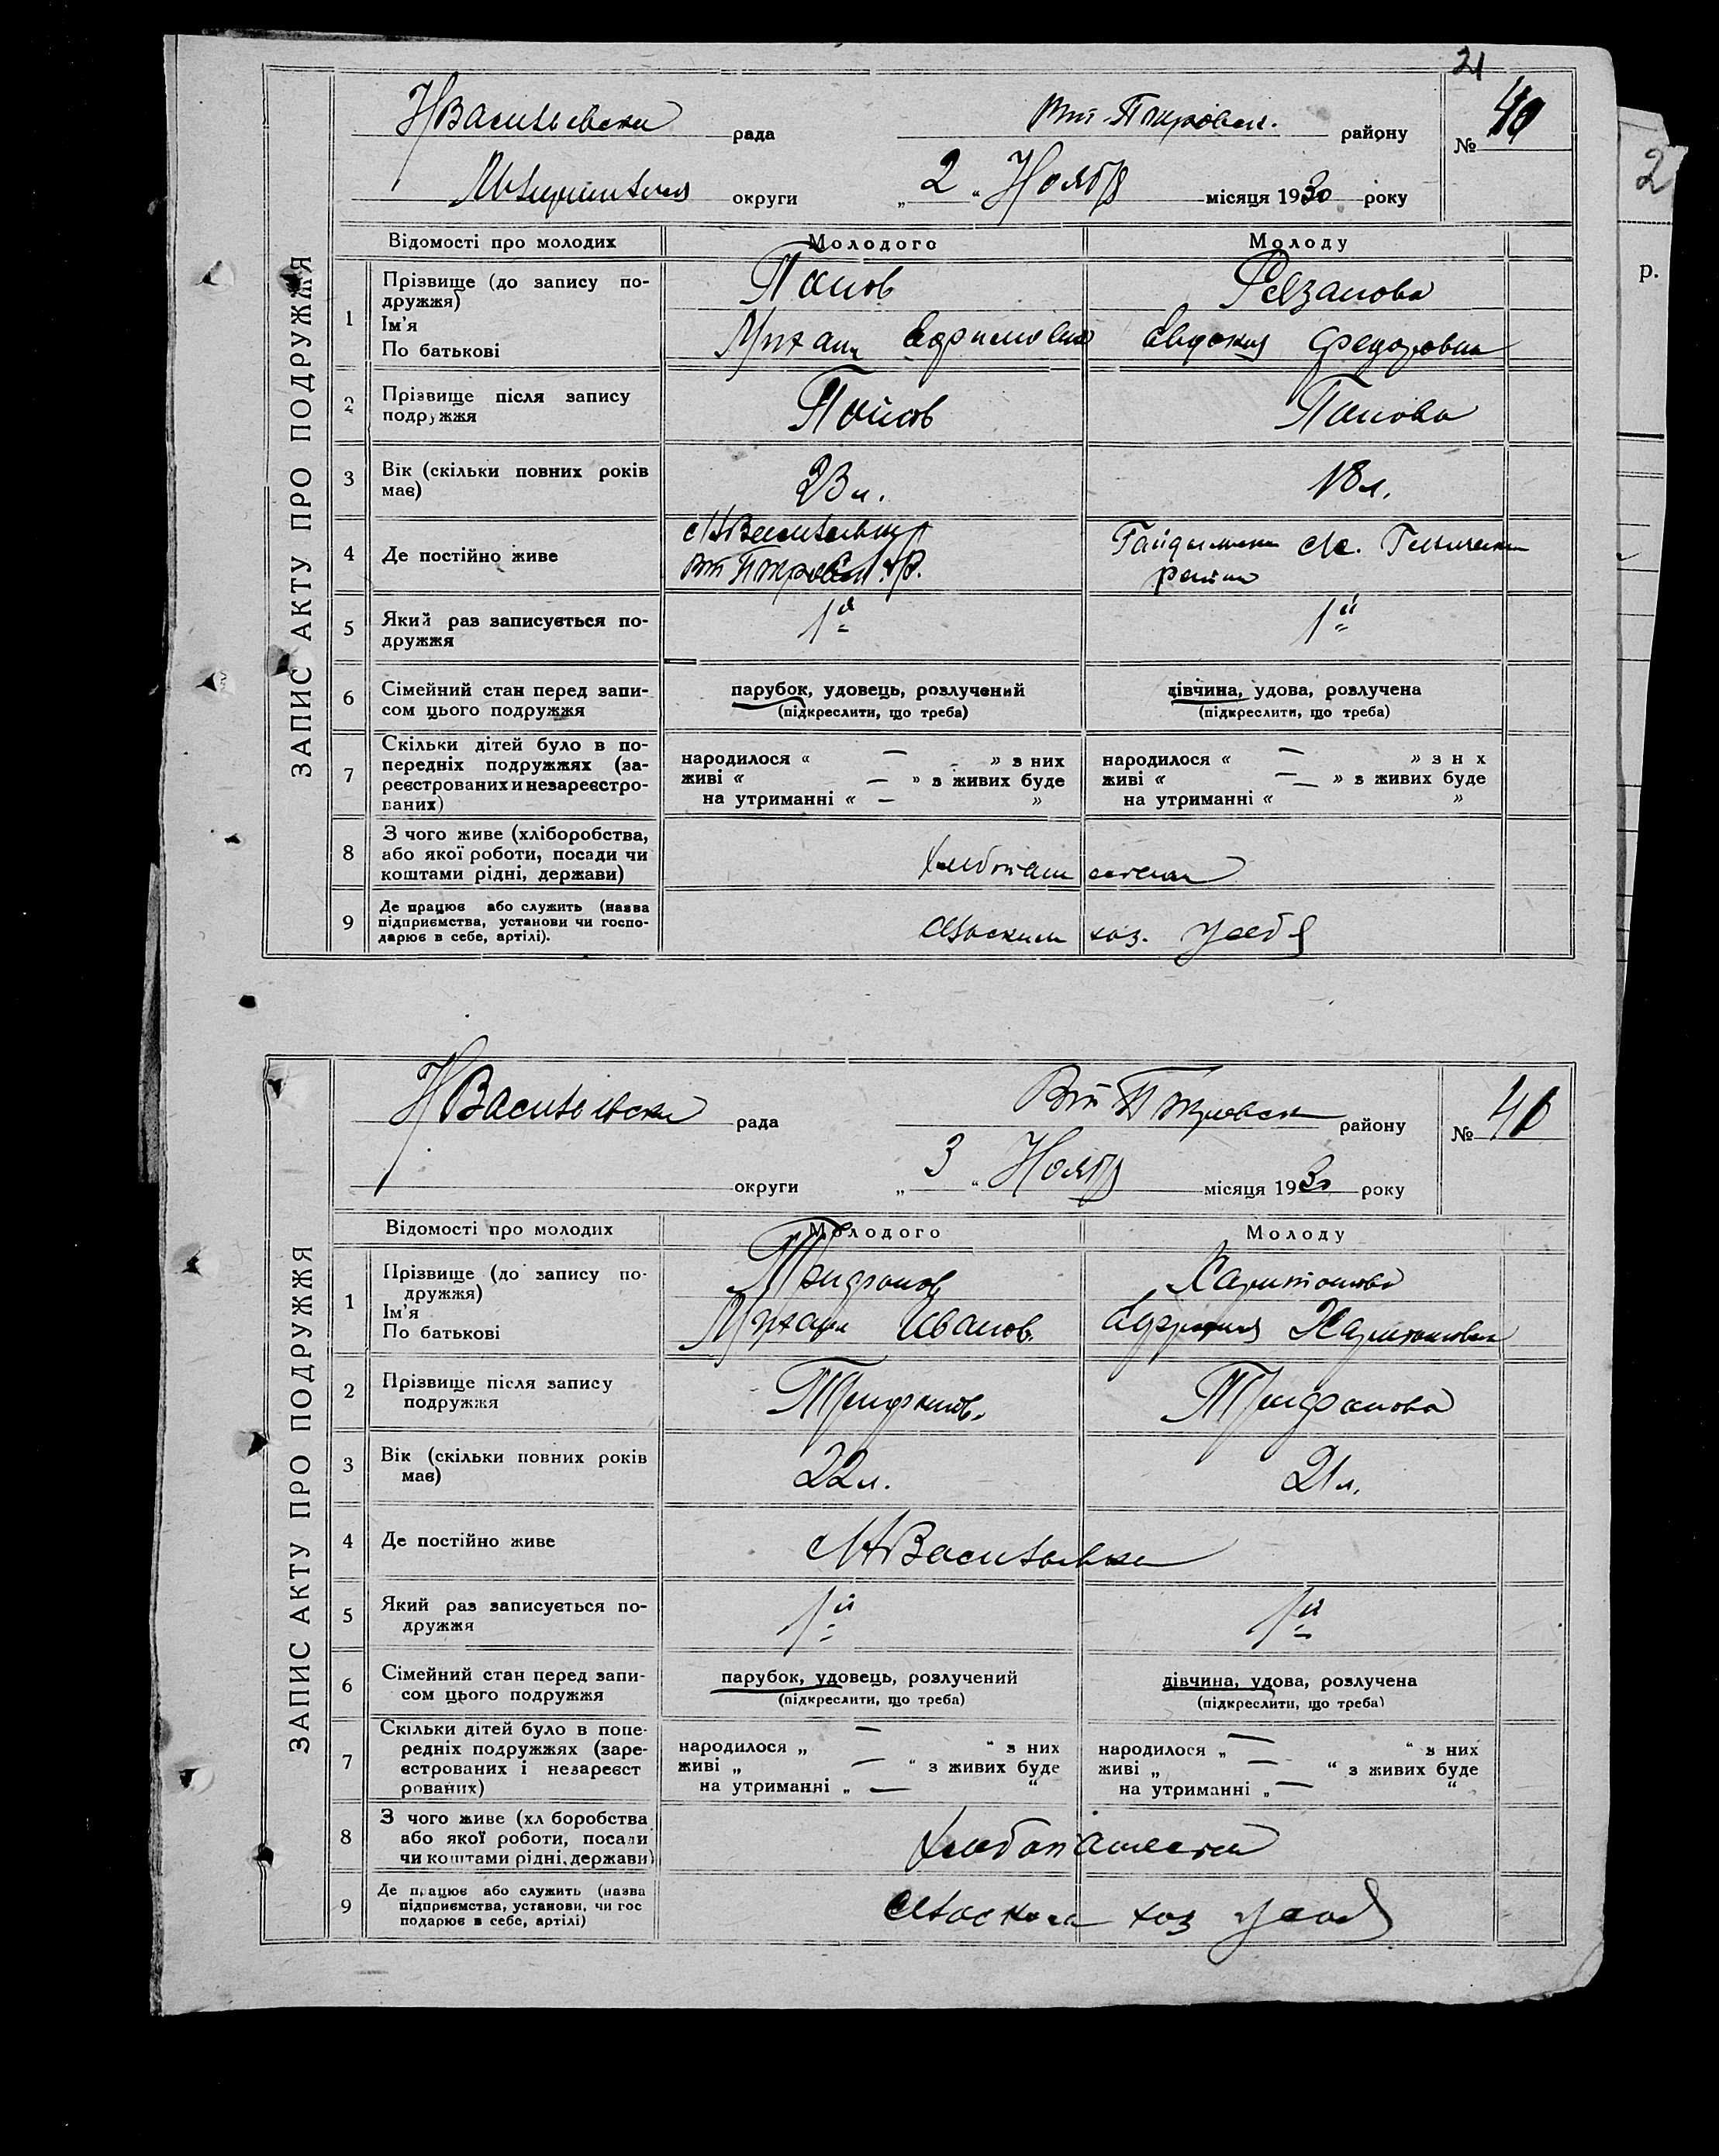 21
Н Васильевска рада Вт-Покровск. району № 40
округи „ 2 “ Ноября місяця 1930 року
ЗАПИС АКТУ ПРО ПОДРУЖЖЯ
Відомості про молодих Молодого Молоду
1 Прізвище (до запису по-
дружжя) Попов
Ім'я
По батькові Михаил Евдокия Федоровна
2 Прізвище після запису
подружжя Попов Попова
3 Вік (скільки повних років
має) 23 л. 18 л.
4 Де постійно живе
район
5 Який раз записується по-
дружжя 1й 1й
6 Сімейний стан перед запи-
сом цього подружжя парубок, удовець, розлучений дівчина, удова, розлучена
(підкреслити, що треба) (підкреслити, що треба)
7 Скільки дітей було в по-
передніх подружжях (за-
реєстрованих и незареєстро-
ваних)
народилося « — » з них народилося « — » з н х
живі « — » з живих буде живі « — » з живих буде
на утриманні « — » на утриманні « »
8 З чого живе (хліборобства,
або якої роботи, посади чи
коштами рідні, держави)
9 Де працює або служить (назва
підприємства, установи чи госпо-
дарює в себе, артілі). хоз. у себя
Н Васильевска рада Вт Покровск району № 40
округи „ 3 “ Ноября місяця 1930 року
ЗАПИС АКТУ ПРО ПОДРУЖЖЯ
Відомості про молодих Молодого Молоду
1 Прізвище (до запису по-
дружжя) Трифонов Харитонова
Ім'я
По батькові Михаил Иванов. Харитоновна
2 Прізвище після запису
подружжя Трифонов. Трифонова
3 Вік (скільки повних років
має) 22 л. 21 л.
4 Де постійно живе с Н Васильевка
5 Який раз записується по-
дружжя 1й 1й
6 Сімейний стан перед запи-
сом цього подружжя парубок, удовець, розлучений дівчина, удова, розлучена
(підкреслити, що треба) (підкреслити, що треба)
7 Скільки дітей було в попе-
редніх подружжях (заре-
єстрованих і незареєст
рованих)
народилося „ — “ з них народилося „ — “ з них
живі „ — “ з живих буде живі „ — “ з живих буде
на утриманні „ — “ на утриманні „ — “
8 З чого живе (хл боробства
або якої роботи, посади
чи коштами рідні, держави)
9 Де працює або служить (назва
підприємства, установи, чи гос
подарює в себе, артілі) хоз у себя
2
р.